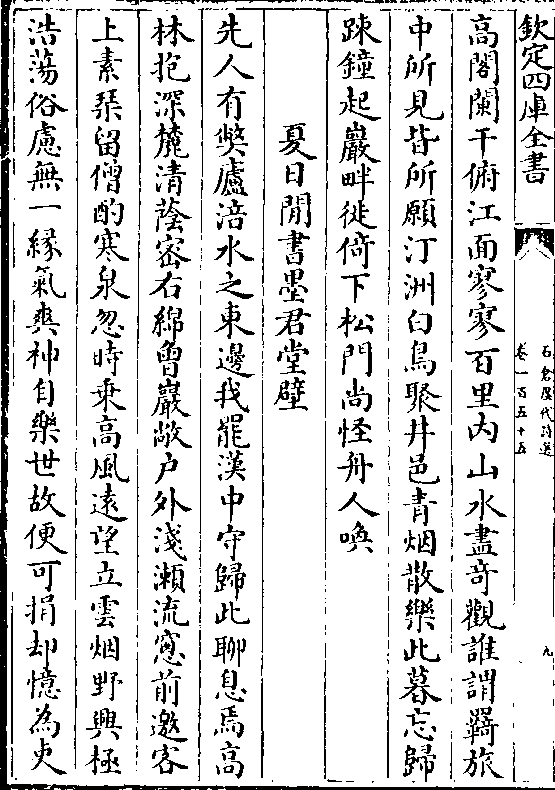 欽定四庫全書
石倉歷代詩選
卷一百五十五
九
高閣闌干俯江面寥寥百里内山水盡奇觀誰謂羇旅
中所見皆所願汀洲白鳥聚井邑青烟散樂此暮忘歸
踈鐘起巖畔徙倚下松門尚怪舟人喚
夏日閒書墨君堂壁
先人有弊廬涪水之東邊我罷漢中守歸此聊息焉高
林抱深麓清蔭密石綿曾巖敞户外淺瀬流窻前邀客
上素琹留僧酌寒泉忽時乗高風遠望立雲烟野興極
浩蕩俗慮無一緣氣爽神自樂世故便可捐却憶為吏